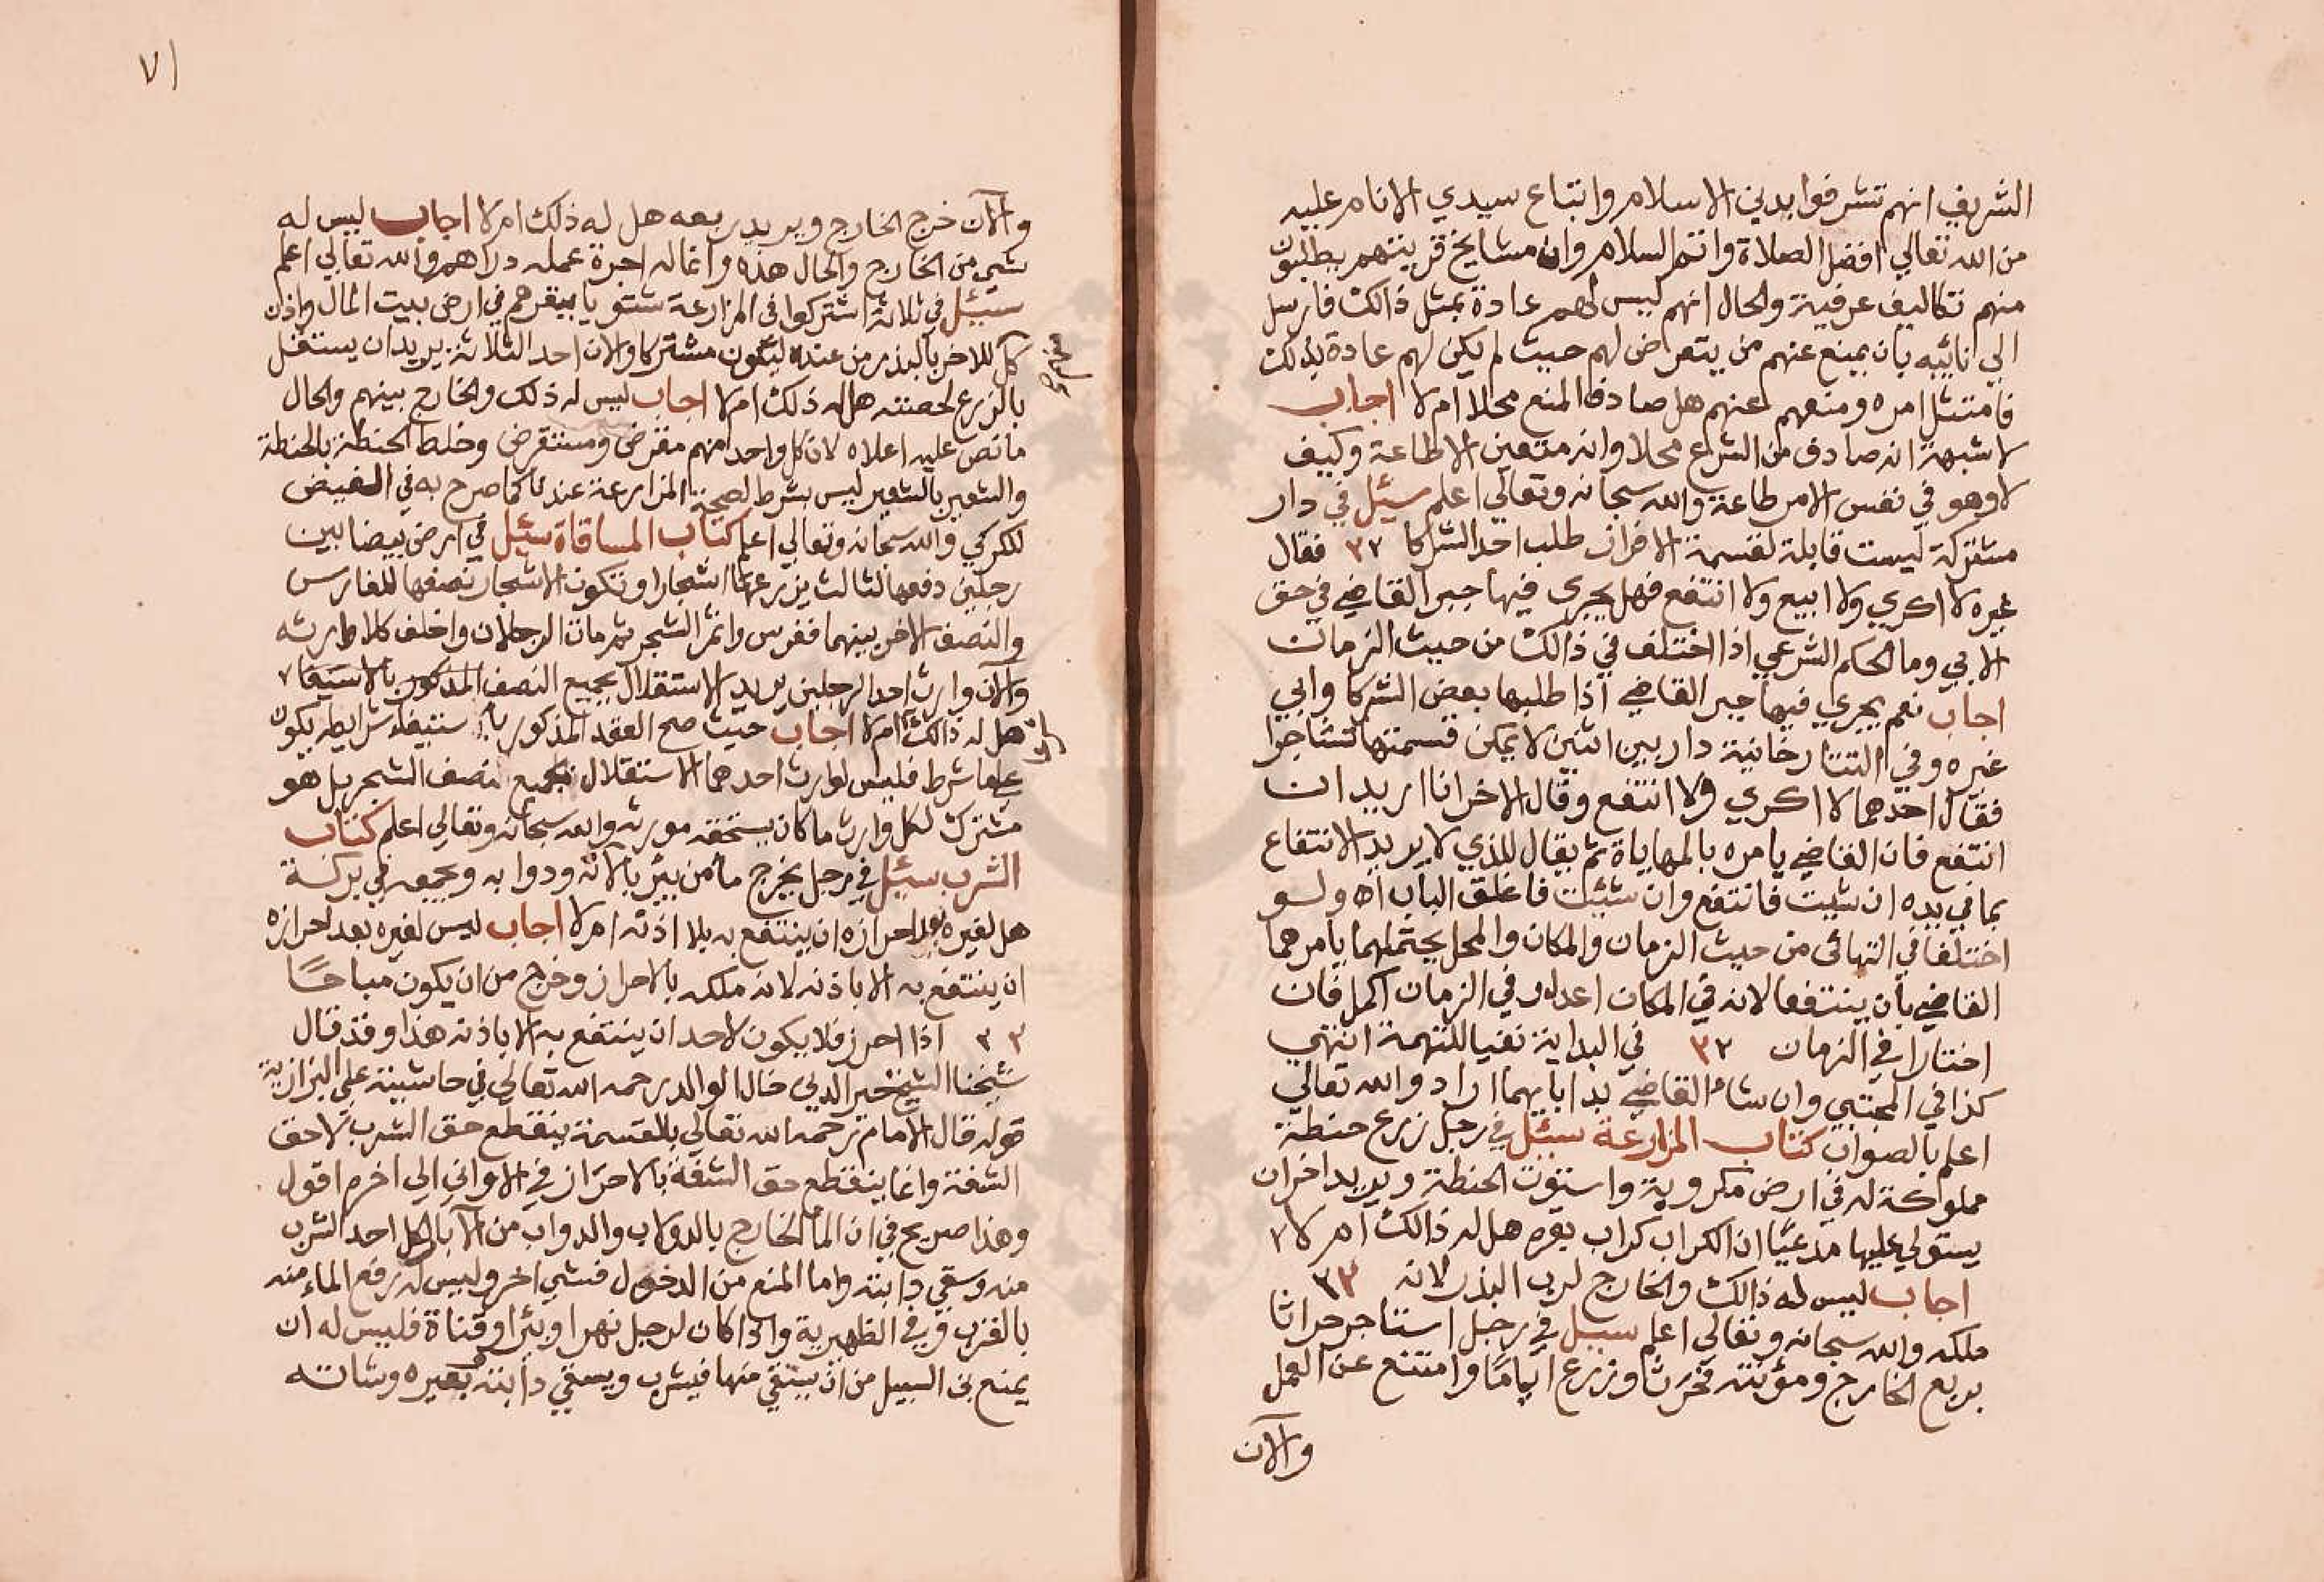 الشريف انهم تشرفوا بدين الاسلام واتباع سيدي الانام عليه
من الله تعالي افضل الصلاة واتم السلام وان مشايخ قريتهم يطلبون
منهم تكاليف عرفية والحال انهم ليس لهم عادة بمثل ذالك فارسل
الي نائبه بان يمنع عنهم من يتعرض لهم حيث لم يكن لهم عادة بذلك
فامتثل امره ومنعهم عنهم هل صادف المنع محلا ام لا اجاب
لا شبهة انه صادف من الشرع محلا وانه متعين الاطاعة وكيف
لا وهو في نفس الامر طاعة والله سبحانه وتعالي اعلم سئل في دار
مشتركة ليست قابلة لقسمة الافراز طلب احد الشركا ٣٢ فقال
غيره لا اكري ولا ابيع ولا انتفع فهل يجري فيها جبر القاضي في حق
الابي وما الحكم الشرعي اذا اختلف في ذالك من حيث الزمان
اجاب نعم يجري فيها جبر القاضي اذا طلبها بعض الشركا وابي
غيره وفي التتارخانية دار بين اثنين لا يمكن قسمتها تشاجرا
فقال احدهما لا اكري ولا انتفع وقال الاخر انا اريد ان
انتفع فان القاضي يامره بالمهاياة ثم يقال للذي لا يريد الانتفاع
بما في يده ان شيت فانتفع وان شئت فاغلق الباب اه ولو
اختلفا في التهائي من حيث الزمان والمكان والمحل يحتملهما يامرهما
القاضي بان ينتفعا لانه في المكان اعدل وفي الزمان اكمل فان
اختارا في الزمان ٣٢ في البداية نفيا للتهمة انتهي
كذا في المجتبي وان شاء القاضي بدا بايهما اراد والله تعالي
اعلم بالصواب كتاب المزارعة سئل في رجل زرع حنطة
مملوكة له في ارض مكروبة واستوت الحنطة ويريد اخر ان
يستولي عليها مدعيا ان الكراب كراب يوم هل له ذالك ام لا
اجاب ليس له ذالك والخارج لرب البذر لانه ٣٢
ملكه والله سبحانه وتعالي اعلم سيل في رجل استاجر حراثا
بربع الخارج ومؤنته فحرثا وزرع اياما وامتنع عن العمل
والآن
٧١
والآن خرج الخارج ويريد ربعه هل له ذلك ام لا اجاب ليس له
شي من الخارج والحال هذه وانما له اجرة عمله دراهم والله تعالي اعلم
سئل في ثلاثة اشتركوا في المزارعة شتويا ببقرهم في ارض بيت المال واذن
كل للاخر بالبذر من عنده ليكون مشتركا والان احد الثلاثة يريد ان يستقل
بالزرع لحصته هل له ذلك ام لا اجاب ليس له ذلك والخارج بينهم والحال
ما نص عليه اعلاه لان كل واحد منهم مقرض ومستقرض وخلط الحنطة بالحنطة
والشعير بالشعير ليس بشرط لصحة المزارعة عندنا كما صرح به في الفيض
للكركي والله سبحانه وتعالي اعلم كتاب المساقاة سئل في ارض بيضا بين
رجلين دفعها لثالث يزرعها اشجارا وتكون الاشجار نصفها للغارس
والنصف الاخر بينهما فغرس واثمر الشجر ثم مات الرجلان واخلف كلا وارثه
والآن وارث احد الرجلين يريد الاستقلال بجميع النصف المذكور بالاستيفاء
هل له ذالك ام لا اجاب حيث صح العقد المذكور باستيفاء شرايطه يكون
علي ما شرط فليس لوارث احدهما الاستقلال بجميع نصف الشجر بل هو
مشترك لكل وارث ما كان يستحقه مورثه والله سبحانه وتعالي اعلم كتاب
الشرب سئل في رجل يخرج ماء من بير بالاته ودوابه ويجمعه في بركة
هل لغيره بعد احرازه ان ينتفع به بلا اذنه ام لا اجاب ليس لغيره بعد احرازه
ان ينتفع به الا باذنه لانه ملكه بالاحراز وخرج من ان يكون مباحا
٣٢ اذا احرز فلا يكون لاحد ان ينتفع به الا باذنه هذا وقد قال
شيخنا الشيخ خير الدين خال الوالد رحمه الله تعالي في حاشيته علي البزازية
قوله قال الامام رحمه الله تعالي بالقسمة ينقطع حق الشرب لا حق
الشفة وانما ينقطع حق الشفة بالاحراز في الاواني الي اخره اقول
وهذا صريح في ان الماء الخارج بالدولاب والدواب من الآبار لكل احد الشرب
منه وسقي دابته واما المنع من الدخول فشي اخر وليس له رفع الماء منه
بالقرب وفي الظهيرية واذا كان لرجل نهر او بئر او قناة فليس له ان
يمنع بن السبيل من ان يستقي منها فيشرب ويسقي دابته وبعيره وشاته